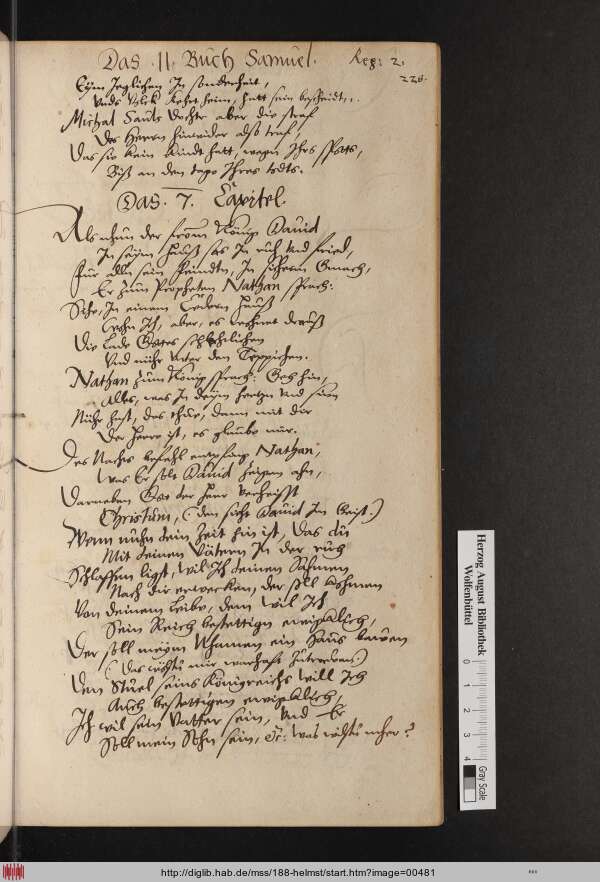 Das .II. Buch Samuel. Reg: 2.
226.
Eym Jeglichen In sonderheit,
Unds Volck kehrt heim, hatt sein bescheidt,.
Michal Sauls Dochter aber die straf
Des Herrn hinwider also traf,
Das sie kein Kindt hatt, wegn Ihrs spotts,
Biß an den tage Ihres todts.
Das .7. Capitel.
Als nhun der from König Dauid
In seym Hauß sas In ruh und fried,
Für alln sein feindtn, In sicherm Gmach,
Er zum Propheten Nathan sprach:
Sihe, In einem Cedern Hauß
Wohn Ich, aber, es drauß
Die Lade Gottes
Und nuhr unter den Teppichen.
Nathan zum König sprach: Geh hin,
Alles, was In deym hertzn und sinn
Nuhr hast, das thue, denn mit dir
Der Herr ist, es glaube mir.
Des Nachts befehl entpfing Nathan,
Was Er solt Dauid zeigen ahn,
Darneben Gott der Herr verheisst
Christum, (den sicht Dauid Im Geist.)
Wenn nuhn dein Zeit hin ist, das du
Mit deinen Vätern In der ruh
Schlaffen ligst, wil Ich deinen Sahmen
Nach dir erwecken, der soll kohmen
Von deinem Leibe, dem wil Ich
Sein Reich bestettign ewigklich,
Der soll meym Nhamen ein Haus bawen
(Das wöltu mir warhaft Zutrawen.)
Den Stuel seins Königreichs will Ich
Auch bestettigen ewigklich,
Ich wil sein Vatter sein, und Er
Soll mein Sohn sein, &c: was wilstu meher?
Herzog August Bibliothek
Wolfenbüttel
0 1 2 3 4
Gray Scale
http://diglib.hab.de/mss/188-helmst/start.htm?image=00481